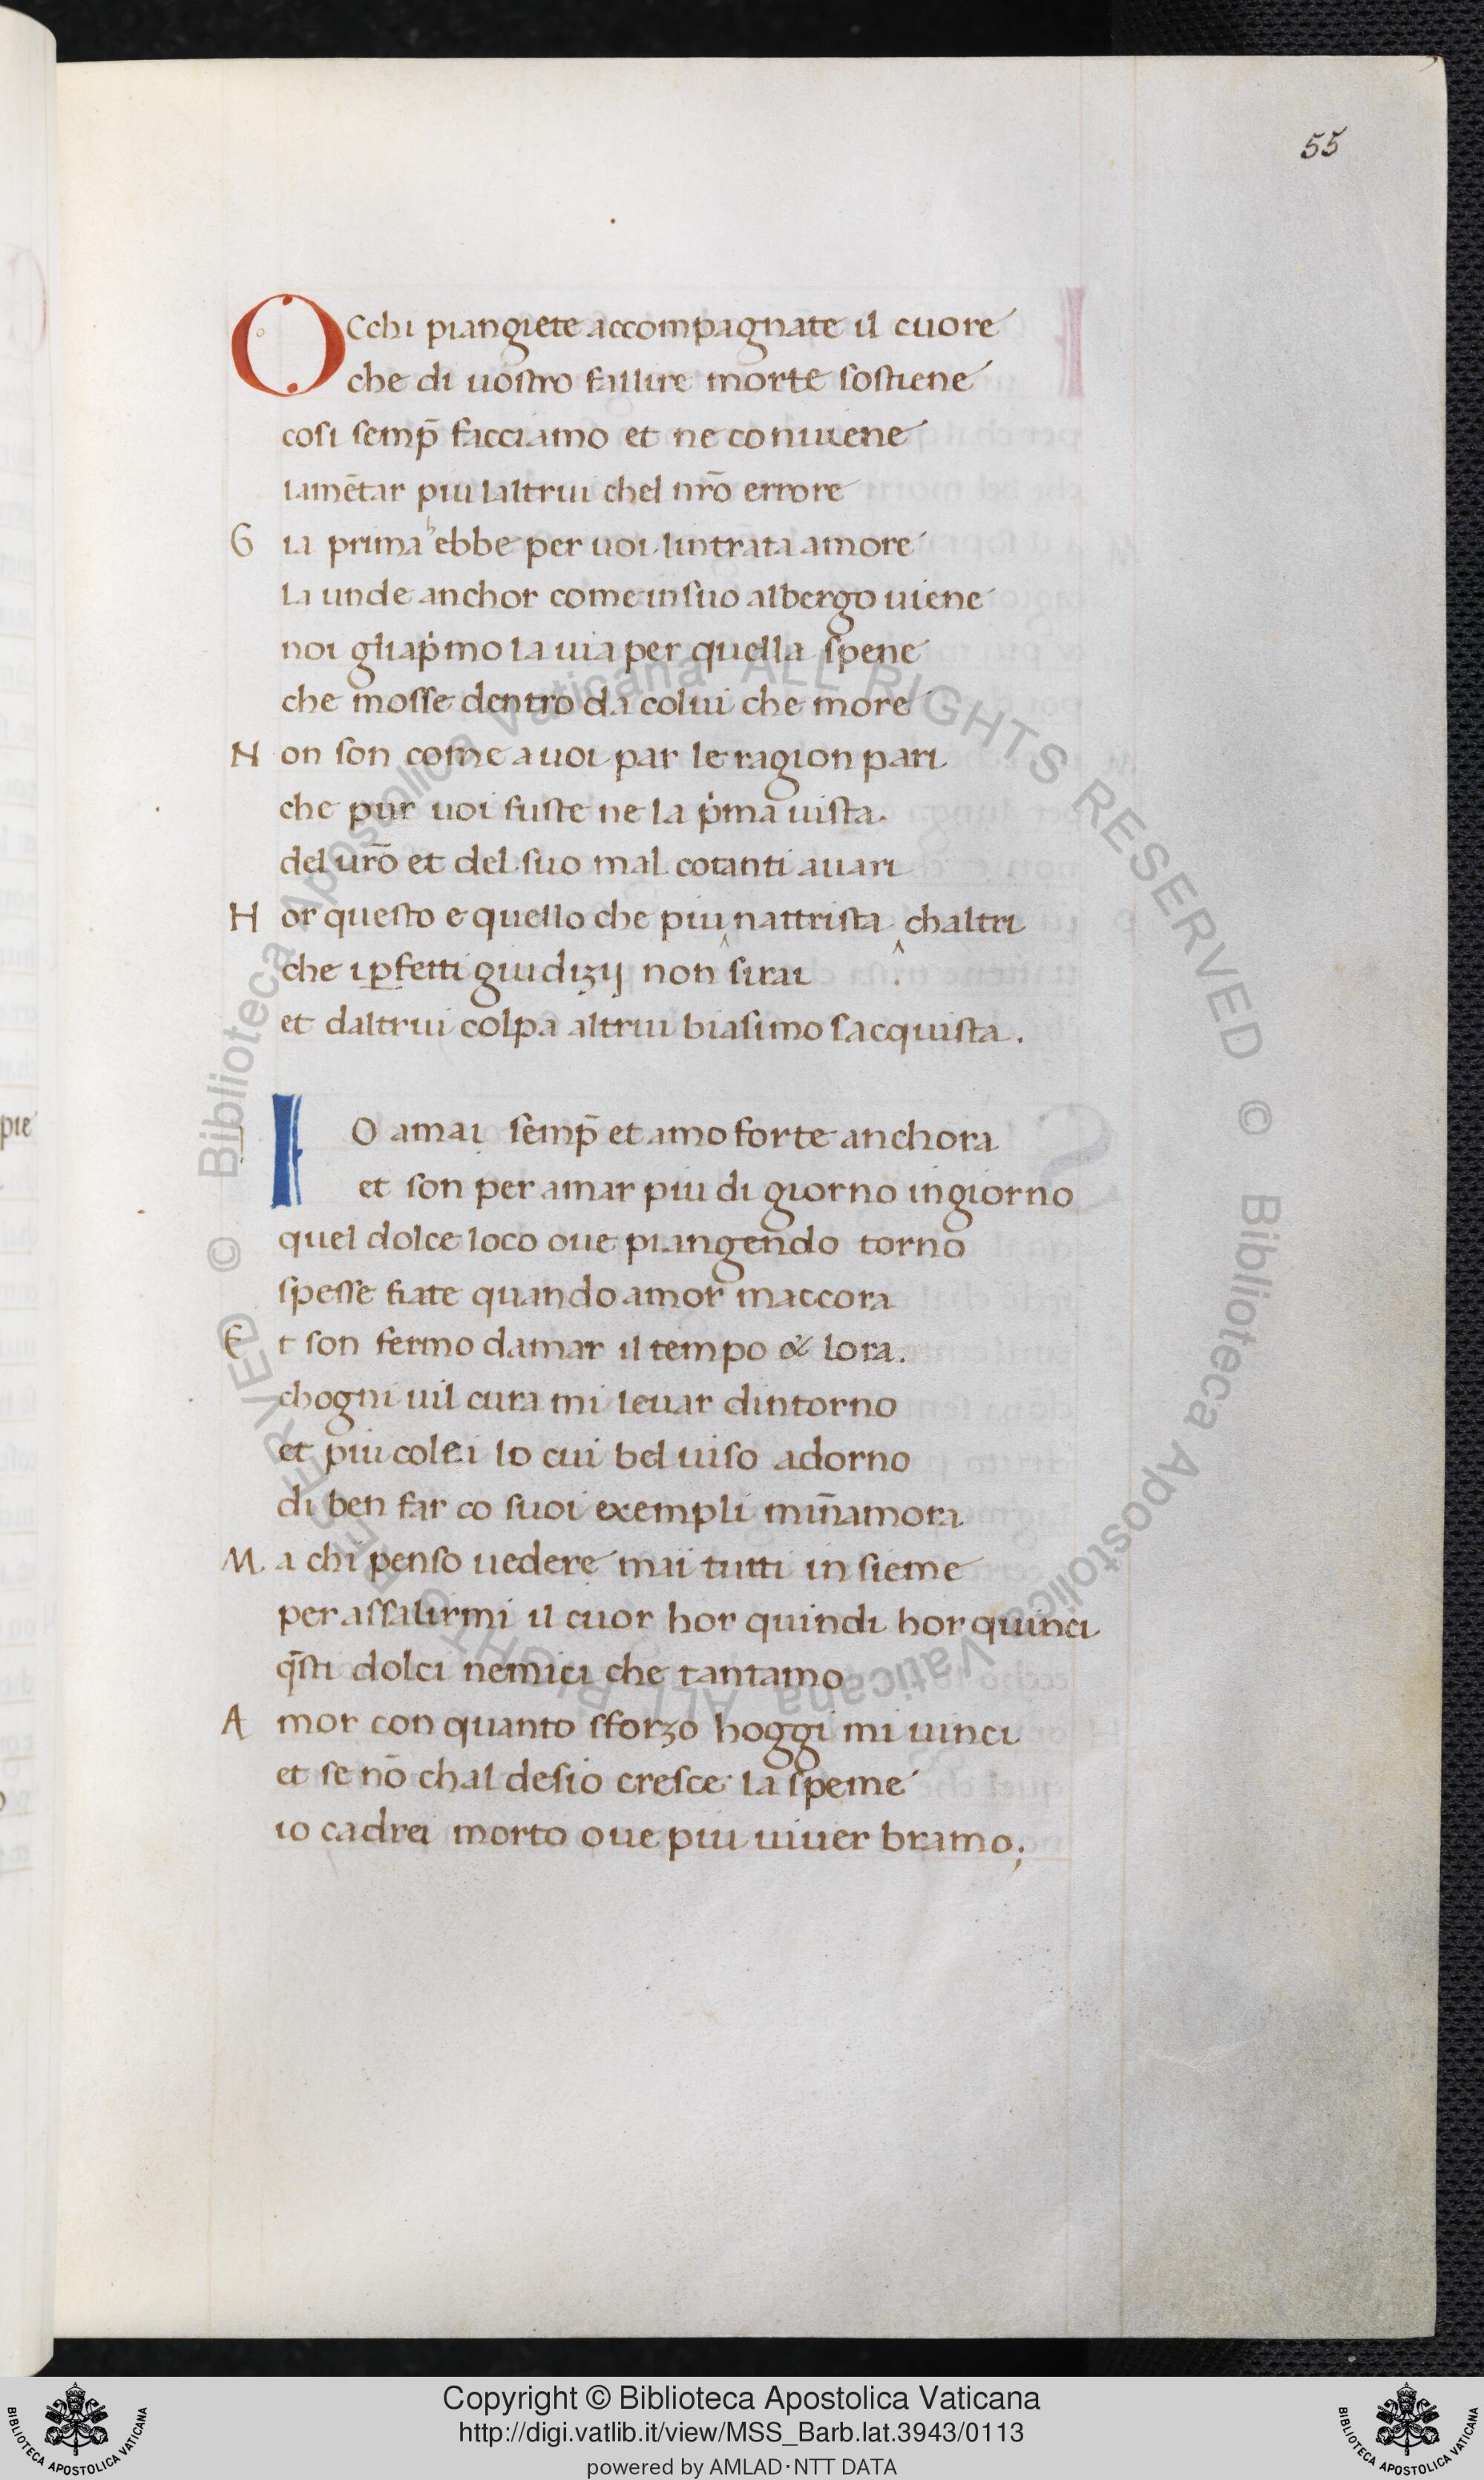 55
OCchi piangiete accompagnate il cuore
che di uostro fallire morte sostiene
cosi semp̄ facciamo et ne conuiene
lamētar piu laltrui chel nr̄o errore
G ia prima ebbe per uoi lintrata amore
la unde anchor come in suo albergo uiene
noi gliap̍mo la uia per quella spene
che mosse dentro da colui che more
N on son come a uoi par le ragion pari
che pur uoi fuste ne la p̍ma uista
del ur̄o et del suo mal cotanti auari
H or questo e quello che piu nattrista chaltri
che i ꝑfetti giudizij non si rai
et daltrui colpa altrui biasimo sacquista.
IO amai semp̄ et amo forte anchora
et son per amar piu di giorno in giorno
quel dolce loco oue piangendo torno
spesse fiate quando amor maccora
E t son fermo damar il tempo & lora.
chogni uil cura mi leuar dintorno
et piu colei lo cui bel uiso adorno
di ben far co suoi exempli min̄amora
M a chi penso uedere mai tutti in sieme
per assalirmi il cuor hor quindi hor quinci
q̄sti dolci nemici che tantamo
A mor con quanto sforzo hoggi mi uinci
et se nō chal desio cresce la speme
io cadrei morto oue piu uiuer bramo;
pie
© Biblioteca Apostolica Vaticana ALL RIGHTS RESERVED © Biblioteca Apostolica Vaticana ALL RIGHTS RESERVED
BIBLIOTECA APOSTOLICA VATICANA
Copyright © Biblioteca Apostolica Vaticana
http://digi.vatlib.it/view/MSS_Barb.lat.3943/0113
powered by AMLAD·NTT DATA
BIBLIOTECA APOSTOLICA VATICANA